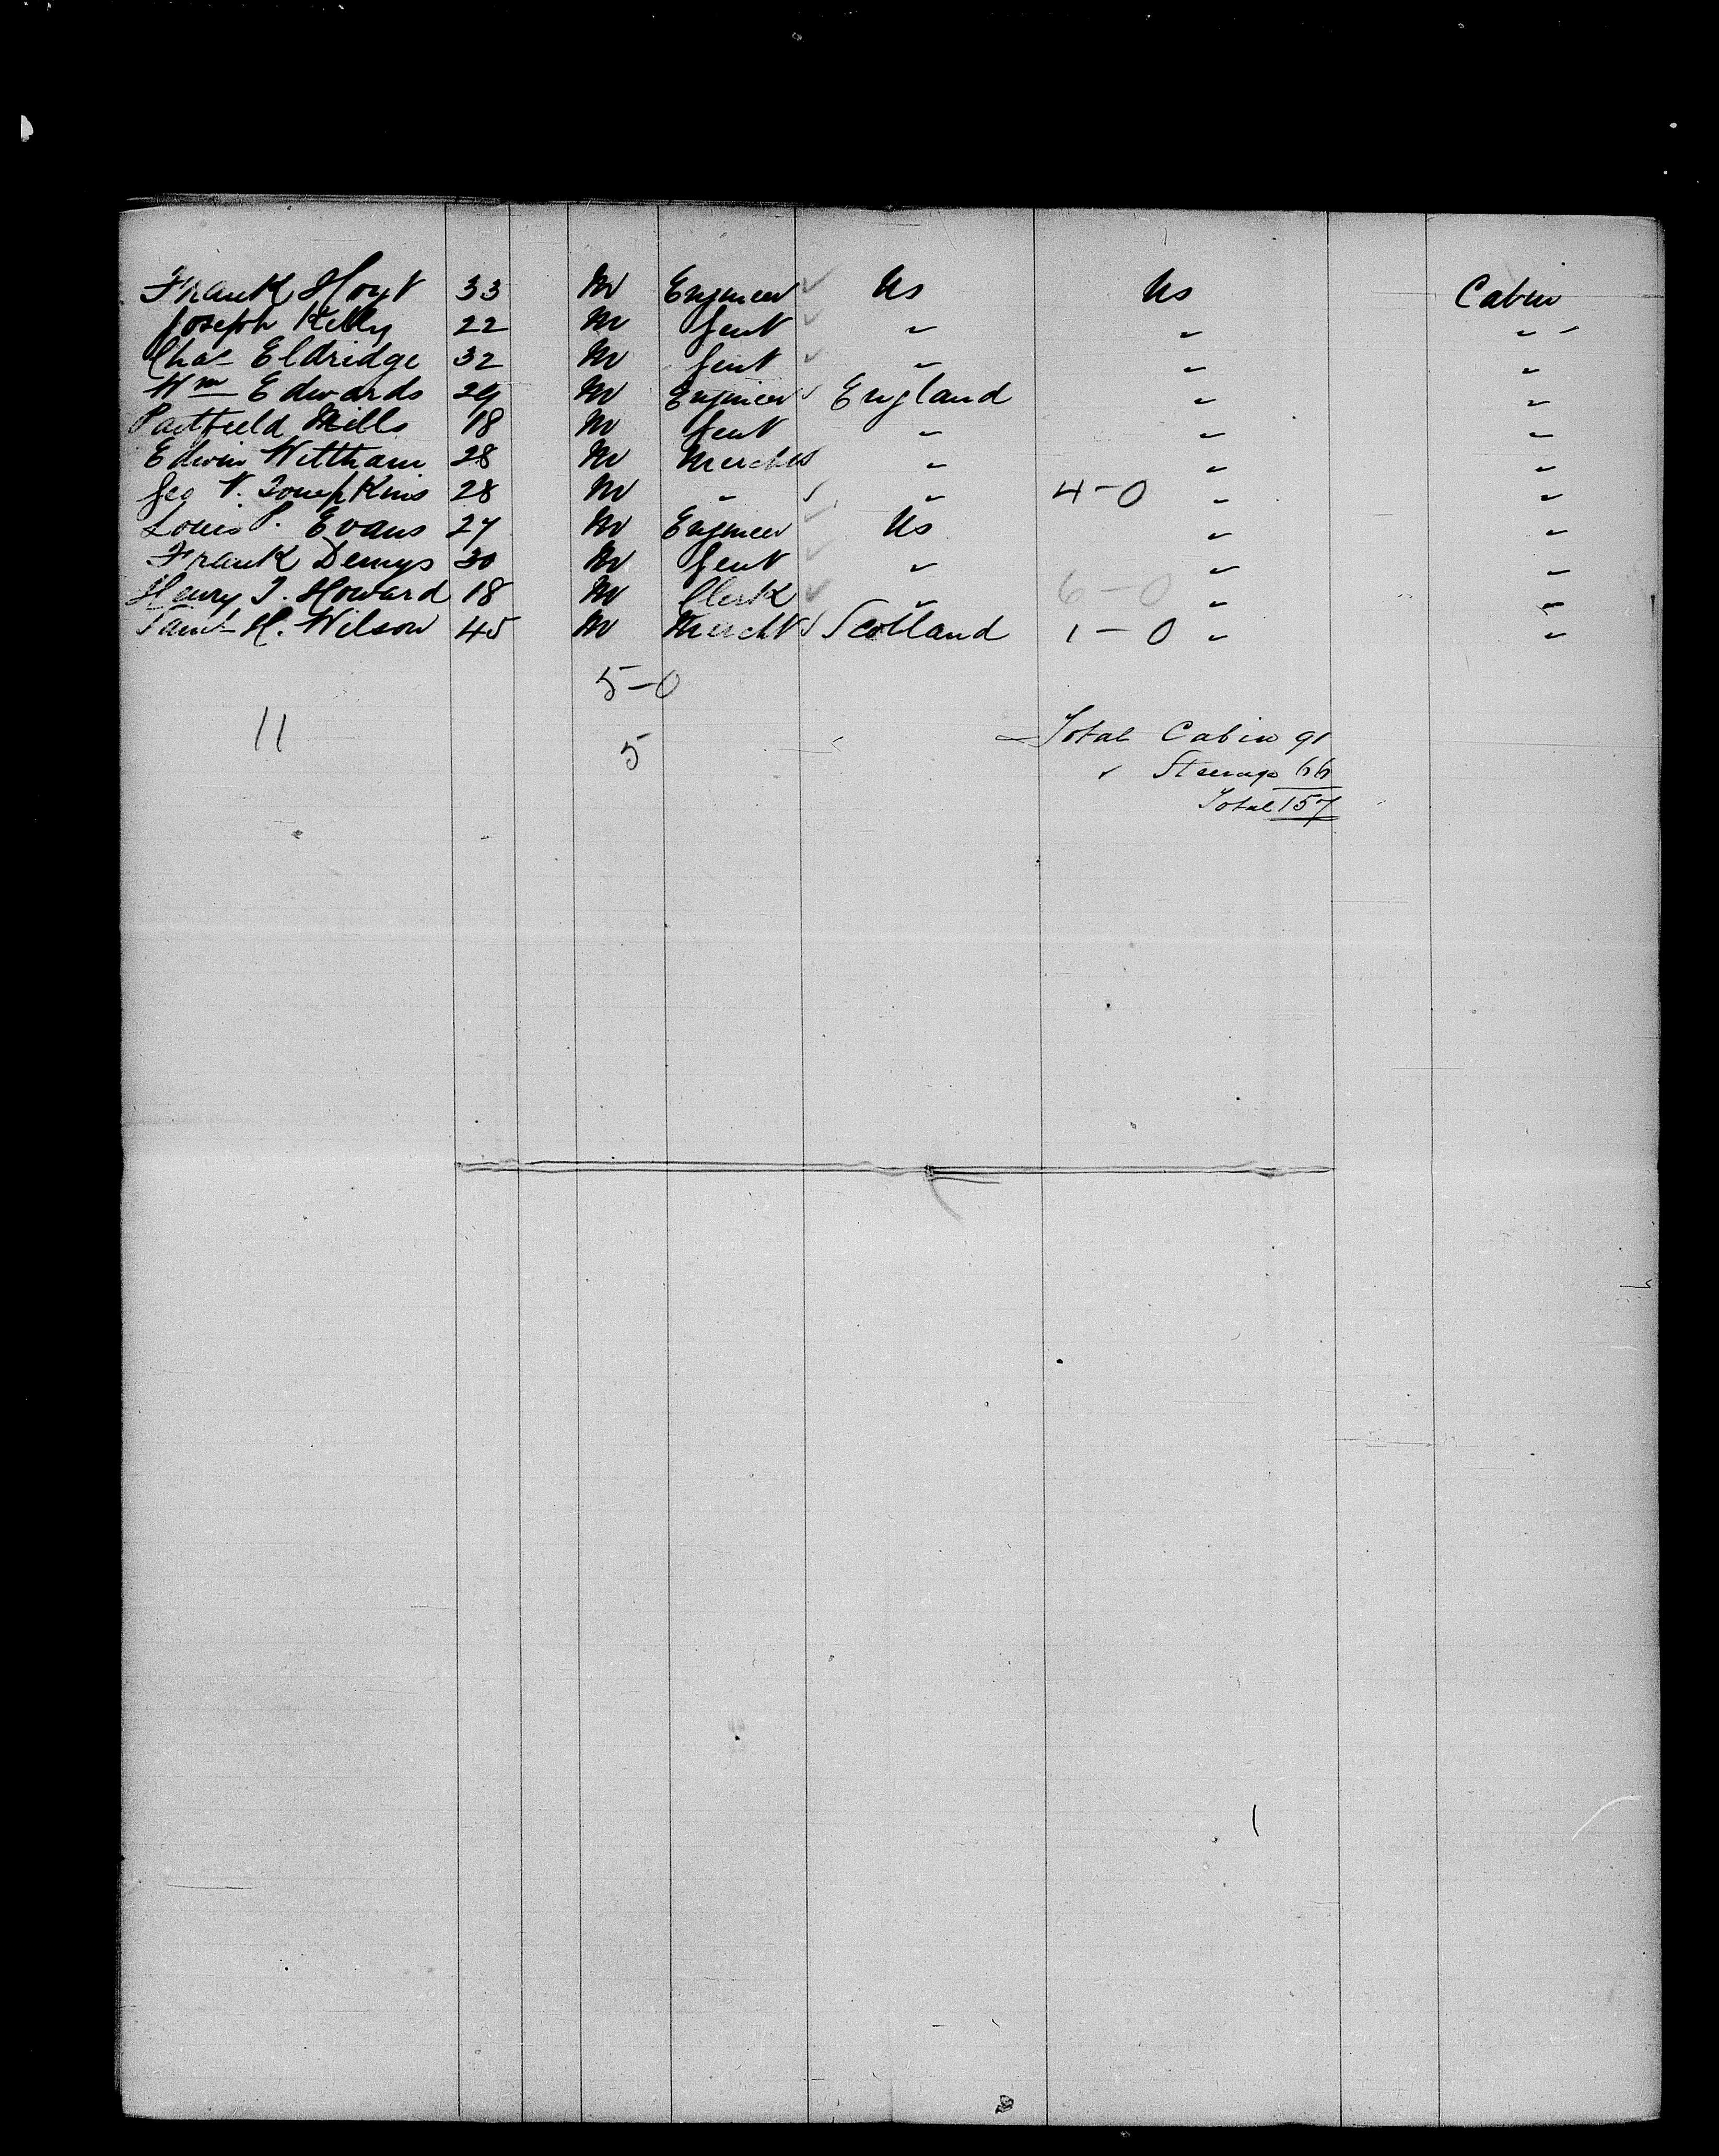 Frank Hoyt 33 M Engineer ✓ Us Us Cabin
Joseph Kelly 22 M Gent ✓ " " "
Chas Eldridge 32 M Gent ✓ " " "
Wm Edwards 29 M Engineer ✓ England " "
Mills 18 M Gent " " "
Edwin Wittham 28 M Mercht ✓ " " "
Geo 28 M " ✓ " 4-0 " "
Louis P. Evans 27 M Engineer ✓ Us " "
Frank Denys 30 M Gent ✓ " " "
Henry J. Howard 18 M Clerk ✓ " 6-0 " "
Saml H. Wilson 45 M Mercht ✓ Scotland 1-0 " "
5-0
11 5 Total Cabin 91
" Steerage 66
Total 157